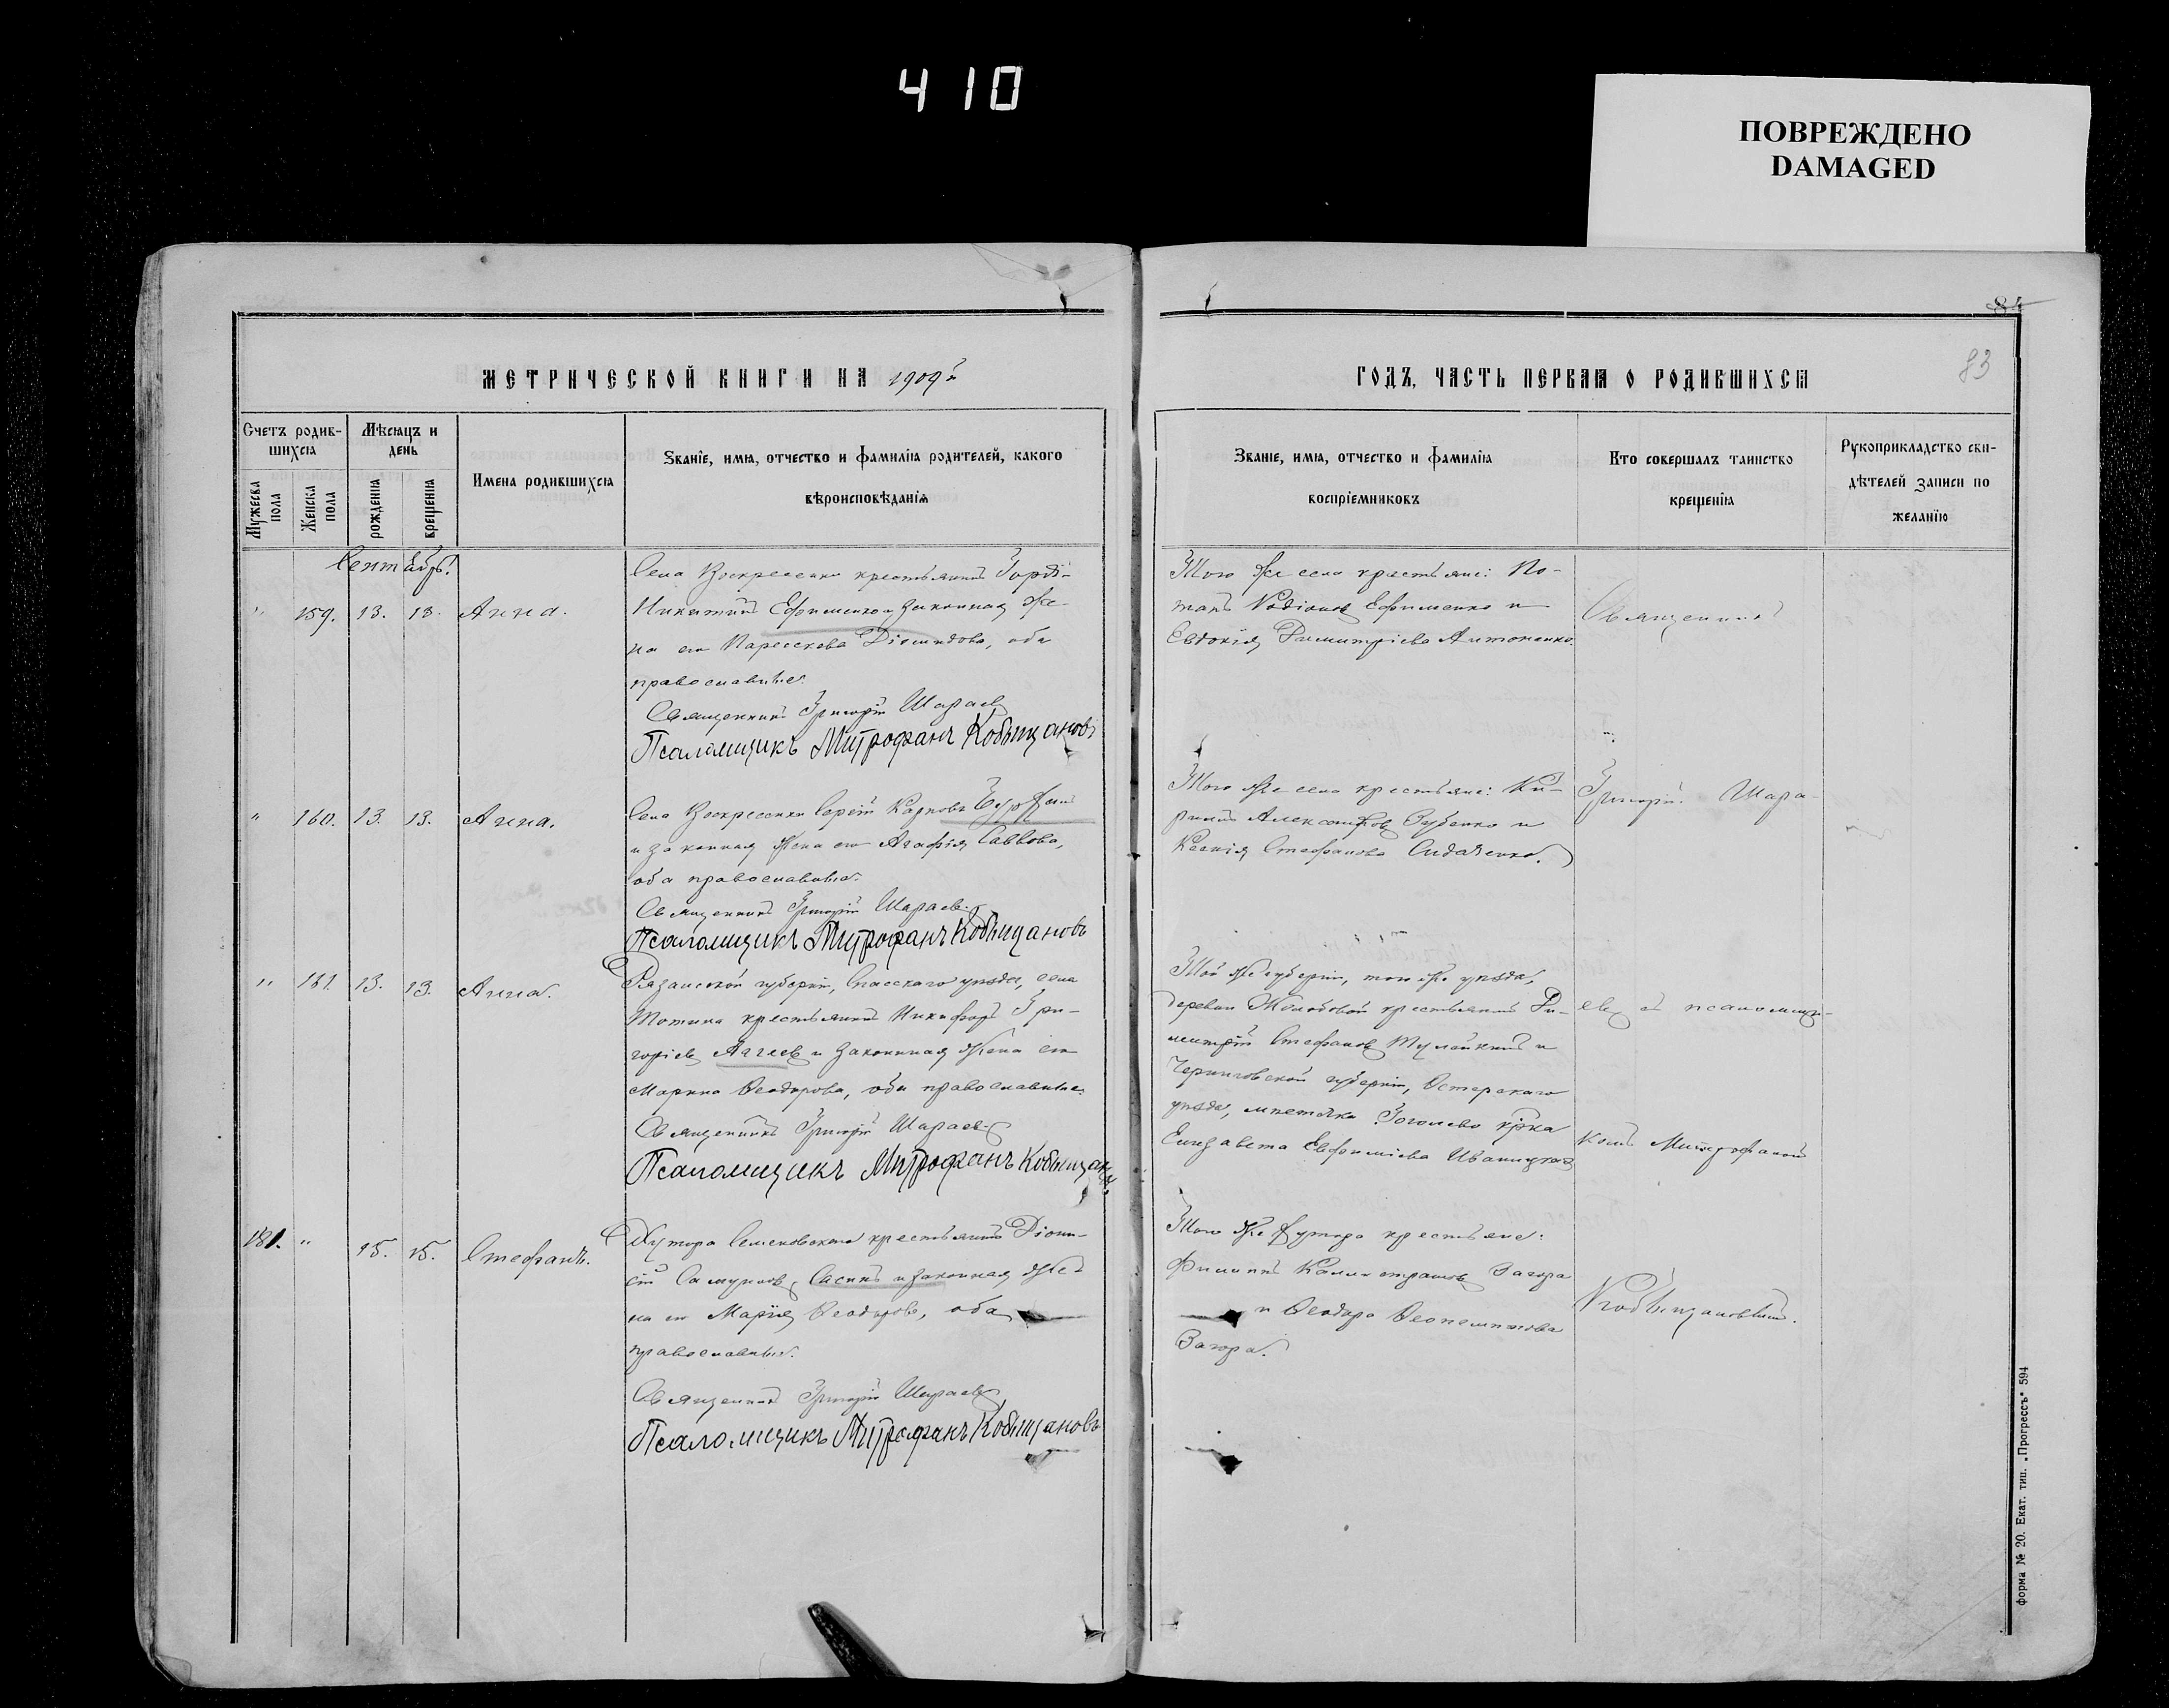 410
ПОВРЕЖДЕНО
DAMAGED
84
83
МЕТРИЧЕСКОЙ КНИГИ НА 1909й
ГОДЪ, ЧАСТЬ ПЕРВАЯ О РОДИВШИХСЯ
Счетъ родив-
шихся
Мѣсяцъ и
день
Имена родившихся
Званіе, имя, отчество и фамилія родителей, какого
вѣроисповѣданія
Мужеска
пола
Женска
пола
рожденія
крещенія
Званіе, имя, отчество и фамилія
воспріемниковъ
Кто совершалъ таинство
крещенія
Рукоприкладство сви-
дѣтелей записи по
желанію
Сентябрь.
" 159. 13. 13. Анна.
Села Воскресенки крестьянинъ Гордій
Никитинъ Ефименко и законная же-
на его Параскева Діомидова, оба
православные.
Священникъ Григорій Шараевъ
Псаломщикъ Митрофанъ Кобыщановъ
Того же села крестьяне: По-
тапъ Родіоновъ Ефименко и
Евдокія Димитріева Антоненко.
" 160. 13. 13. Анна.
Села Воскресенки Сергій Карповъ
и законная жена его Агафія Саввова,
оба православные.
Священникъ Григорій Шараевъ.
Псаломщикъ Митрофанъ Кобыщановъ
Того же села крестьяне: Ки-
риллъ Александровъ Зубенко и
Ксенія Стефанова
" 161. 13. 13. Анна.
Рязанской губерніи, Спасскаго уѣзда, села
крестьянинъ Никифоръ Гри-
горіевъ Агеевъ и законная жена его
Марина Ѳеодорова, оба православные.
Священникъ Григорій Шараевъ
Псаломщикъ Митрофанъ Кобыщановъ
Той же губерніи, того же уѣзда,
деревни крестьянинъ Ди-
митрій Стефановъ и
Черниговской губерніи, Остерскаго
уѣзда, мѣстечка Гоголево кр-ка
Елизавета Евфиміева Иваницкая
181. " 15. 15. Стефанъ.
Хутора Семеновскаго крестьянинъ Діони-
сій Самуиловъ Сасинъ и законная же-
на его Марія Ѳеодорова, оба
православные.
Священникъ Григорій Шараевъ
Псаломщикъ Митрофанъ Кобыщановъ
Того же хутора крестьяне:
Филиппъ Каллистратовъ Загора
и Ѳеодора Ѳеопемптова
Загора.
Священникъ
Григорій Шара-
евъ съ псаломщи-
комъ Митрофаномъ
Кобыщановымъ.
форма № 20. Екат. тип. „Прогрессъ“ 594